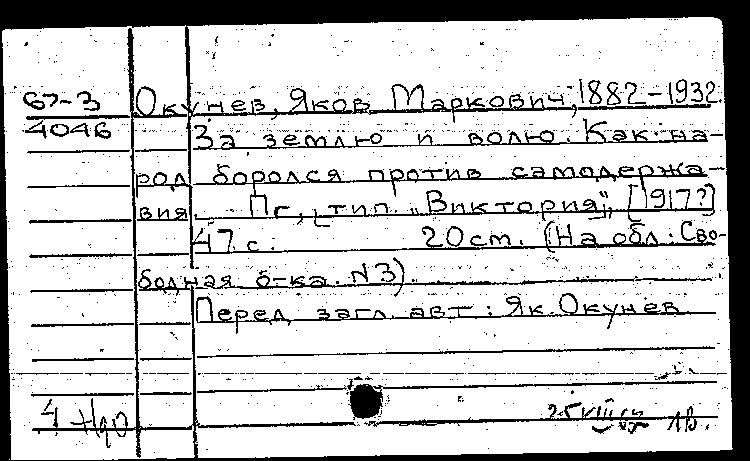 67-3 Окунев, Яков Маркович, 1882-1932.
4046 За землю и волю. Как на-
род боролся против самодержа-
вия. Пг, тип. „Виктория", [1917?]
47 с. 20 ст. (На обл.: Сво-
бодная б-ка. N3)
Перед загл. авт: Як. Окунев
4